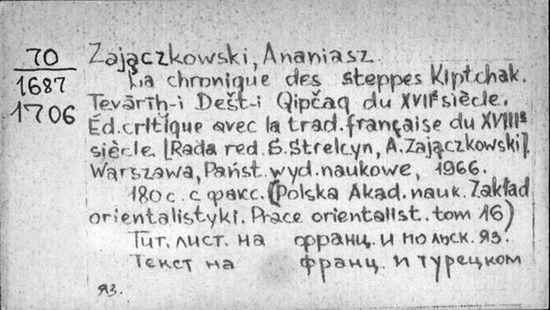 70
1687
1706
Zajączkowski, Ananiasz.
La chronique des steppes Kiptchak.
Tevārīḫ-i Dešt-i Qipčaq du XVIIᵉ siècle.
Éd. critique avec la trad. française du XVIIIᵉ
siècle. [Rada red. S. Strelcyn, A. Zajączkowski].
Warszawa, Państ. wyd. naukowe, 1966.
180 с. с факс. (Polska Akad. nauk. Zakład
orientalistyki. Prace orientalist. tom 16)
Тит. лист. на франц. и польск. яз.
Текст на франц. и турецком
яз.